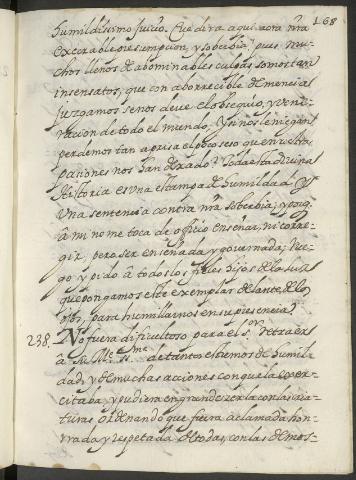 168
humildissimo juizio. Que dira aqui aora nra
execrable presumpcion, y soberbia? pues mu-
chos llenos de abominables culpas somos tan
insensatos, que con aborrecible demencia
juzgamos se nos deue el obsequio, y vene-
racion de todo el mundo. Y si nos le niegan
perdemos tan aprisa el poco seso que nuestras
pasiones nos han dexado? Toda esta diuina
Historia es una estampa de humildad. Y
una sentencia contra nra soberbia; y porq
â mi no me toca de oficio enseñar, ni corre-
gir, pero ser enseñada y gouernada, rue-
go y pido â todos los fieles hijos de la luz
que pongamos este exemplar delante de los
ojos, para humillarnos en su presencia?
238. No fuera dificultoso para el Sr retraer
â su Me Sma de tantos estremos de humil-
dad, y de muchas acciones con que la exer-
citaba, y pudiera engrandecerla con las cria-
turas ordenando que fuera aclamada hon-
rrada y respetada de todas, con las demos-